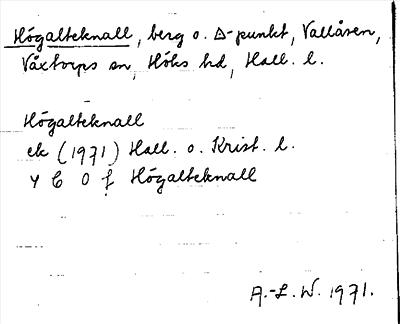 Högalteknall, berg o. Δ-punkt, Vallåsen,
Våxtorps sn, Höks hd, Hall. l.
Högalteknall
ek (1971) Hall. o. Krist. l.
4 C 0 f Högalteknall
A.-L. W. 1971.